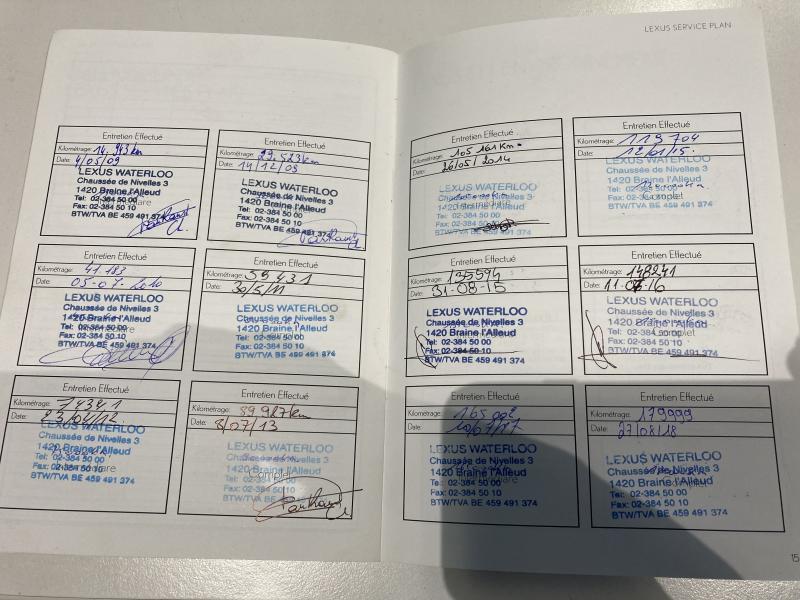 LEXUS SERVICE PLAN
Entretien Effectué
Kilométrage: 14.943 km
Date: 4/05/09
LEXUS WATERLOO
Chaussée de Nivelles 3
1420 Braine l'Alleud
Tel: 02-384 50 00
Fax: 02-384 50 10
BTW/TVA BE 459 491 374
Entretien Effectué
Kilométrage: 27.523 km
Date: 14/12/09
LEXUS WATERLOO
Chaussée de Nivelles 3
1420 Braine l'Alleud
Tel: 02-384 50 00
Fax: 02-384 50 10
BTW/TVA BE 459 491 374
Entretien Effectué
Kilométrage: 41.183
Date: 05-07-2010
LEXUS WATERLOO
Chaussée de Nivelles 3
1420 Braine l'Alleud
Tel: 02-384 50 00
Fax: 02-384 50 10
BTW/TVA BE 459 491 374
Entretien Effectué
Kilométrage: 59431
Date: 30/5/11
LEXUS WATERLOO
Chaussée de Nivelles 3
1420 Braine l'Alleud
Tel: 02-384 50 00
Fax: 02-384 50 10
BTW/TVA BE 459 491 374
Entretien Effectué
Kilométrage: 74341
Date: 23/04/12
LEXUS WATERLOO
Chaussée de Nivelles 3
1420 Braine l'Alleud
Tel: 02-384 50 00
Fax: 02-384 50 10
BTW/TVA BE 459 491 374
Entretien Effectué
Kilométrage: 89987km
Date: 8/07/13
LEXUS WATERLOO
Chaussée de Nivelles 3
1420 Braine l'Alleud
Complet
Tel: 02-384 50 00
Fax: 02-384 50 10
BTW/TVA BE 459 491 374
Entretien Effectué
Kilométrage: 105 161 Km
Date: 26/05/2014
LEXUS WATERLOO
Chaussée de Nivelles 3
1420 Braine l'Alleud
Tel: 02-384 50 00
Fax: 02-384 50 10
BTW/TVA BE 459 491 374
Entretien Effectué
Kilométrage: 119 704
Date: 12/01/15
LEXUS WATERLOO
Chaussée de Nivelles 3
1420 Braine l'Alleud
Tel: 02-384 50 00
Complet
Fax: 02-384 50 10
BTW/TVA BE 459 491 374
Entretien Effectué
Kilométrage: 135594
Date: 31-08-15
LEXUS WATERLOO
Chaussée de Nivelles 3
1420 Braine l'Alleud
Tel: 02-384 50 00
Fax: 02-384 50 10
BTW/TVA BE 459 491 374
Entretien Effectué
Kilométrage: 148241
Date: 11-07-16
LEXUS WATERLOO
Chaussée de Nivelles 3
1420 Braine l'Alleud
Tel: 02-384 50 00
Fax: 02-384 50 10
BTW/TVA BE 459 491 374
Entretien Effectué
Kilométrage: 165 002
Date: 10/07/17
LEXUS WATERLOO
Chaussée de Nivelles 3
1420 Braine l'Alleud
Tel: 02-384 50 00
Fax: 02-384 50 10
BTW/TVA BE 459 491 374
Entretien Effectué
Kilométrage: 179999
Date: 27/08/18
LEXUS WATERLOO
Chaussée de Nivelles 3
1420 Braine l'Alleud
Tel: 02-384 50 00
Fax: 02-384 50 10
BTW/TVA BE 459 491 374
15